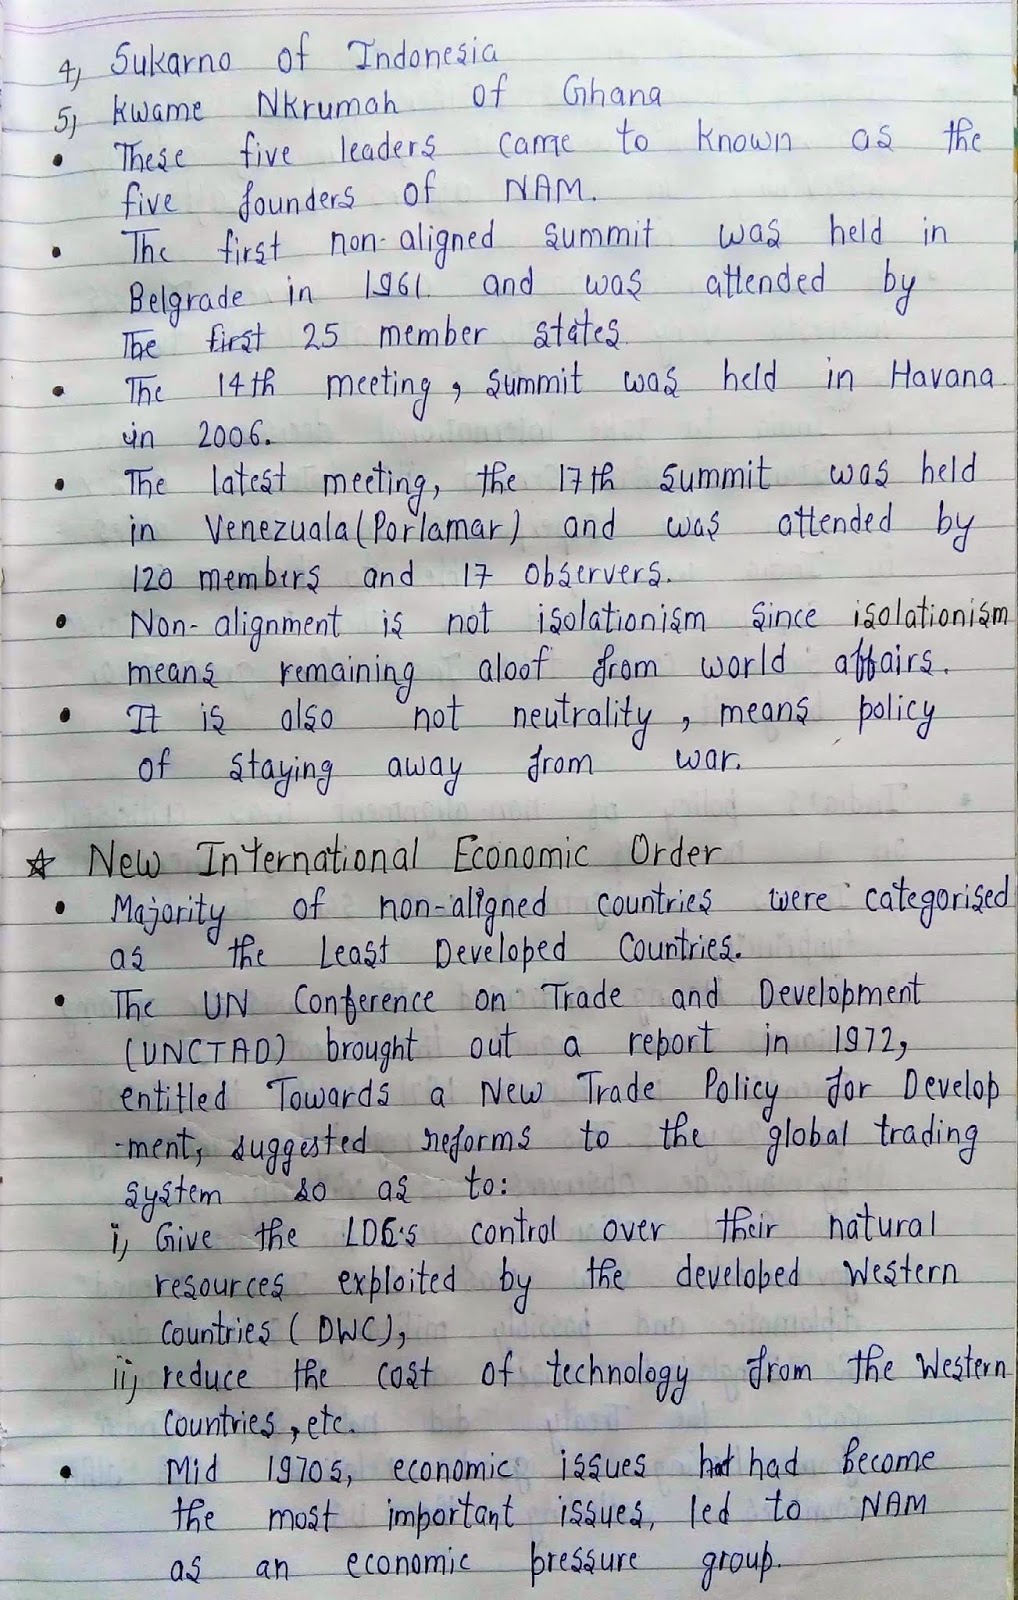 4) Sukarno of Indonesia
5) Kwame Nkrumah of Ghana
• These five leaders came to known as the
five founders of NAM.
• The first non-aligned summit was held in
Belgrade in 1961 and was attended by
The first 25 member states.
• The 14th meeting, summit was held in Havana
in 2006.
• The latest meeting, the 17th summit was held
in Venezuala (Porlamar) and was attended by
120 members and 17 observers.
• Non-alignment is not isolationism since isolationism
means remaining aloof from world affairs.
• It is also not neutrality, means policy
of staying away from war.
☆ New International Economic Order
• Majority of non-aligned countries were categorised
as the Least Developed Countries.
• The UN Conference on Trade and Development
(UNCTAD) brought out a report in 1972,
entitled Towards a New Trade Policy for Develop
-ment, suggested reforms to the global trading
system so as to:
i) Give the LDC's control over their natural
resources exploited by the developed Western
Countries (DWC),
ii) reduce the cost of technology from the Western
Countries, etc.
• Mid 1970s, economic issues had become
the most important issues, led to NAM
as an economic pressure group.